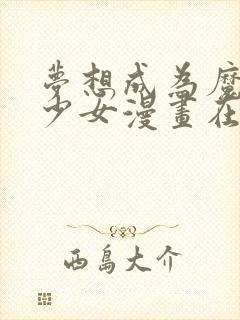 夢想成為魔
少女漫畫在
西島大介